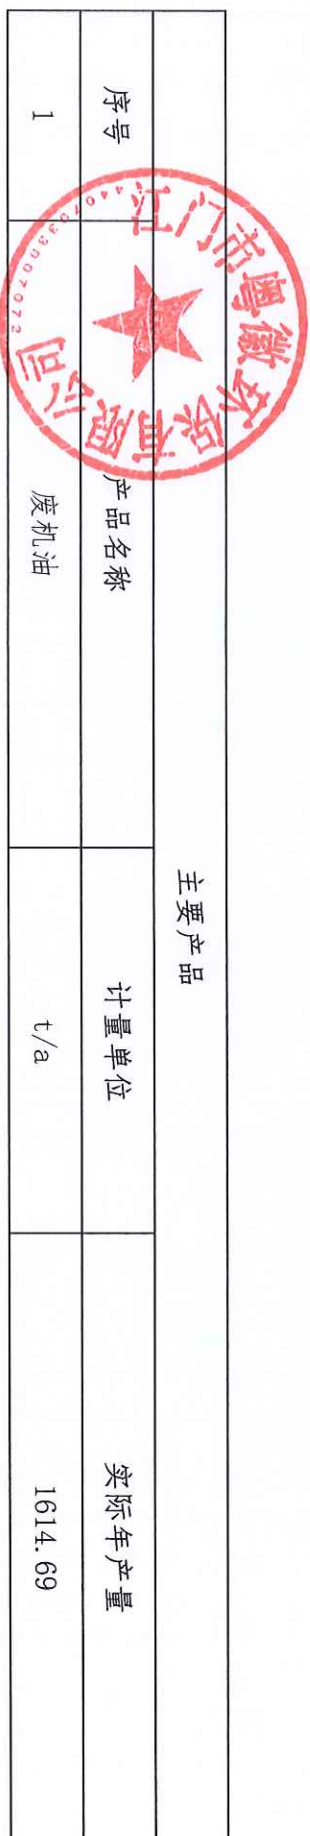 主要产品
序号 产品名称 计量单位 实际年产量
1 废机油 t/a 1614.69
江门市粤徽环保有限公司
4407033007072